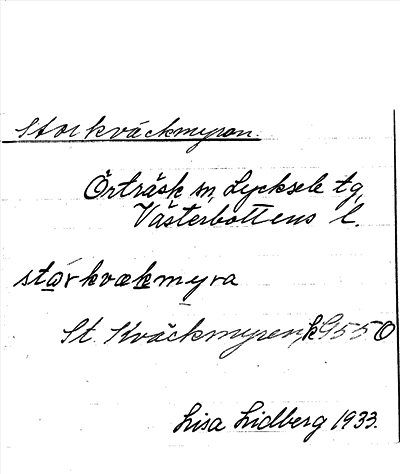 Storkväckmyran.
Örträsk sn, Lycksele tg,
Västerbottens l.
stårkvækmyra
St. Kväckmyren, k 9550
Lisa Lidberg 1933.